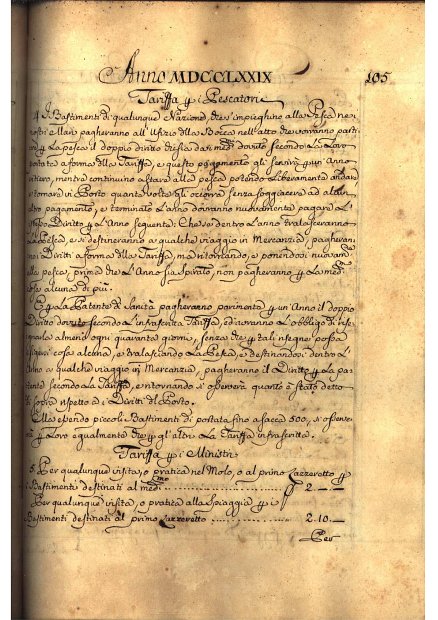 Anno MDCCLXXIX
105
Tariffa p i Pescatori
I Bastimenti di qualunque Nazione, che s'impieghino alla Pesca ne
nostri Mari pagheranno all'Ufizio della Bocca nell'atto che vorranno parti
p La pesca il doppio diritto secondo La Loro
portata a forma della Tariffa, e questo pagamento gli servirà p un Anno
intiero, mentre continuino a stare alla pesca potendo Liberamente andare
e tornare in Porto quante volte gli occorra senza soggiacere ad alcun
altro pagamento, e terminato L'anno dovranno nuovamente pagare L'
Diritto p L'Anno seguente: Che se dentro L'anno tralasceranno
La Pesca, e si destineranno a qualche viaggio in Mercanzia, pagheran
no i Diritti a forma della Tariffa, ma ritornando, e ponendosi nuovam
alla pesca, prima che L'Anno sia spirato, non pagheranno p La
alcuna di più.
E p La Patente di Sanità pagheranno parimente p un'Anno il doppio
Diritto dovuto secondo L'infrascritta Tariffa, ed avranno L'obbligo di
almeno ogni quaranta giorni, senza che p tali risegne possa
cosa alcuna, e tralasciando La Pesca, e destinandosi dentro L'
Anno a qualche viaggio in Mercanzia, pagheranno il Diritto p La pa
secondo La Tariffa, e tornando si osserverà quanto è stato detto
di sopra rispetto ai Diritti del Porto.
Ma essendo piccoli Bastimenti di portata fino a sacca 500, si osser
p Loro egualmente che p gli altri La Tariffa infrascritta.
Tariffa p i Ministri
Per qualunque visita, o pratica nel Molo, o al primo Lazzeretto p
i Bastimenti destinati al med.mo 2. —
Per qualunque visita, o pratica alla Spiaggia p i
Bastimenti destinati al primo Lazzeretto 2. 10. —
Per